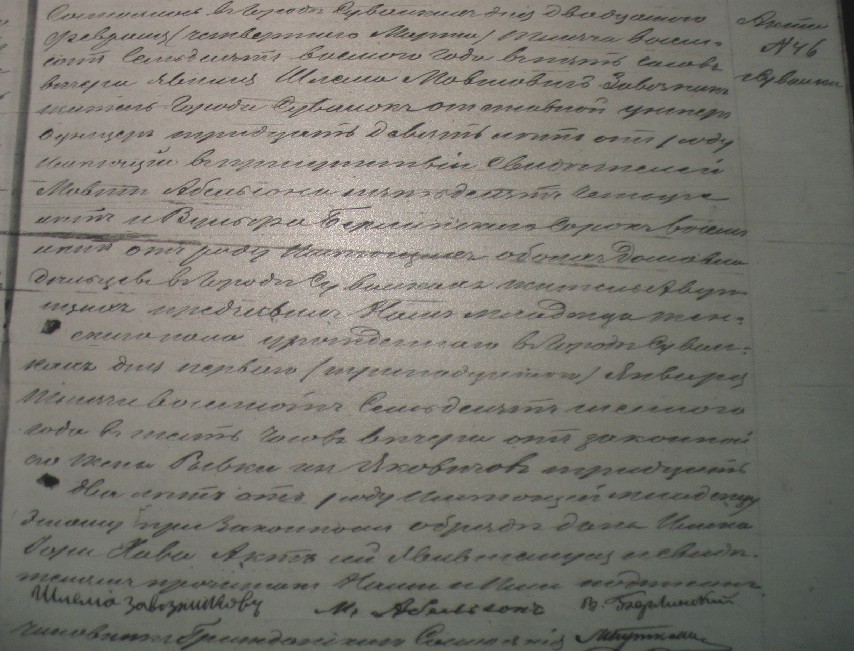 Состоялось в Городе Сувалках дня двадцатого
февраля (четвертого Марта) тысяча восем-
сотъ семьдесятъ восьмого года въ пять часовъ
вечера явился Шлема Мовшовичъ
житель Города Сувалокъ отставной унтеръ
офицеръ тридцать девять летъ отъ роду
имеющий въ присутствии свидетелей
Мовши Абельсона пятьдесятъ четыре
летъ и Вульфа Берлинского сорокъ восемь
летъ отъ роду имеющихъ обоихъ домовла-
дельцевъ въ Городе Сувалкахъ жительствую-
щихъ предъявилъ Намъ младенца жен-
скаго пола урожденнаго въ Городе Сувал-
кахъ дня перваго (тринадцатого) Января
тысяча восемсотъ семьдесятъ
года въ часовъ вечера отъ законной
его жены Ривки изъ Яковичовъ тридцать
два летъ отъ роду имеющей младенцу
этому при законномъ обряде дано Имя
Хава Актъ сей явившемуся и свиде-
телямъ прочитанъ Нами и Ими подписанъ
Шлема Завозниковъ М. Абельсонъ В. Берлинский
Чиновникъ Гражданскаго Состояния
Актъ
№ 46
Сувалки